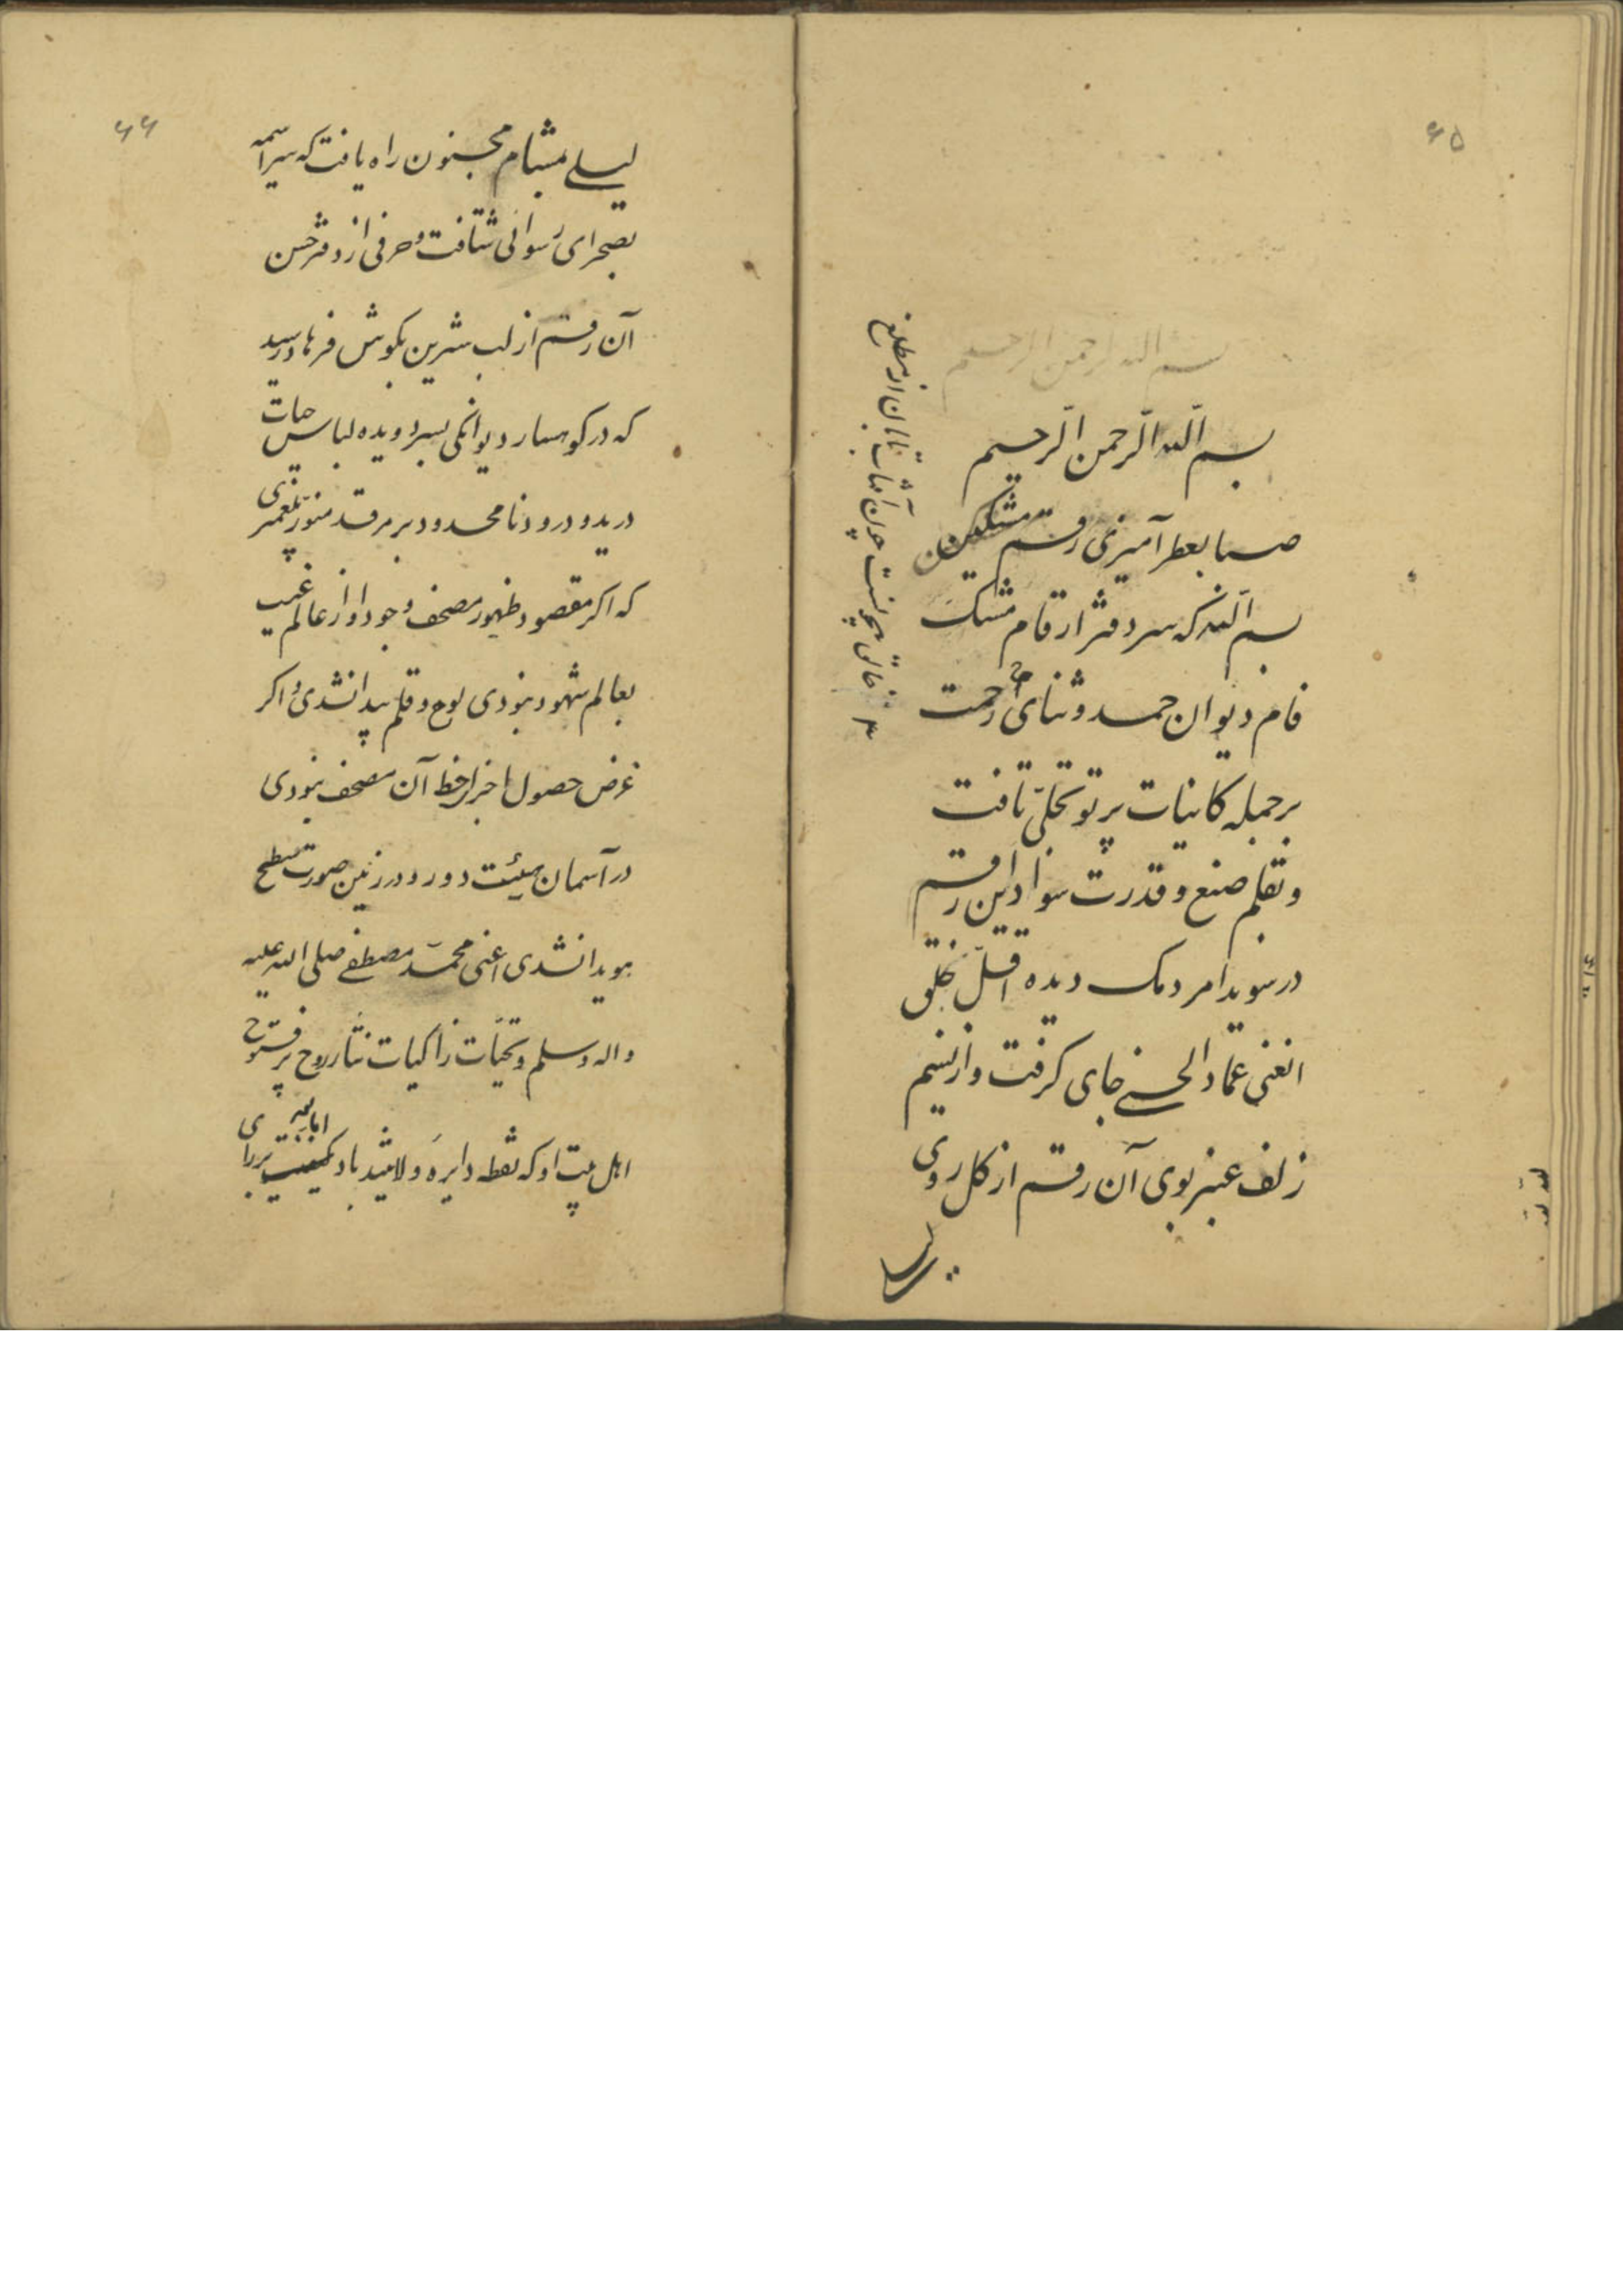 ۶۵
بسم الله الرحمن الرحیم
بسم اللّه الرّحمن الرّحیم
صبا بعطر آمیزی رقم مشکین
بسم اللّه که سر دفتر ارقام مشک
فام دیوان حمد و ثنای رحمت
بر جمله کاینات پرتو تجلّی تافت
و بقلم صنع و قدرت سواد این رقم
در سویدا مردمک دیده اقلّ خلق
اعنی عماد الحسنی جای کرفت و از نسیم
زلف عنبر بوی آن رقم از کل روی
چون آفتاب تابان از مطلع
۶۶
لیلی بمشام مجنون راه یافت که سراسیمه
بصحرای رسوائی شتافت و حرفی از دفتر حسن
آن رقم از لب شیرین بکوش فرهاد رسید
که در کوهسار دیوانکی بسر دویده لباس حیات
درید و درود نامحدود بر مرقد منوّر پیغمبری
که اکر مقصود ظهور مصحف وجود او از عالم غیب
بعالم شهود نبودی لوح و قلم پیدا نشدی و اکر
غرض حصول اجزای خط آن مصحف نبودی
در آسمان هیئت دور و در زمین صورت سطح
هویدا نشدی اعنی محمّد مصطفی صلی الله علیه
و اله و سلم و تحیّات زاکیات نثار روح پر فتوح
اهل بیت او که نقطه دایره ولایتند باد